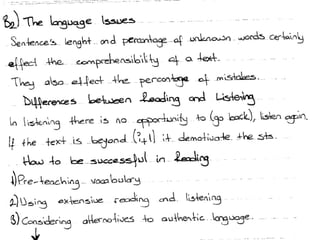 B2) The language Issues
Sentence's lenght and percantage of unknown words certainly
effect the comprehensibility of a text.
They also effect the percantage of mistakes.
Differences between Reading and Listening
In listening there is no opportunity to (go back), listen again.
If the text is beyond (?+1) it demotivate the sts.
How to be successful in Reading
1) Pre-teaching vocabulary
2) Using extensive reading and listening
3) Considering alternatives to authentic language.